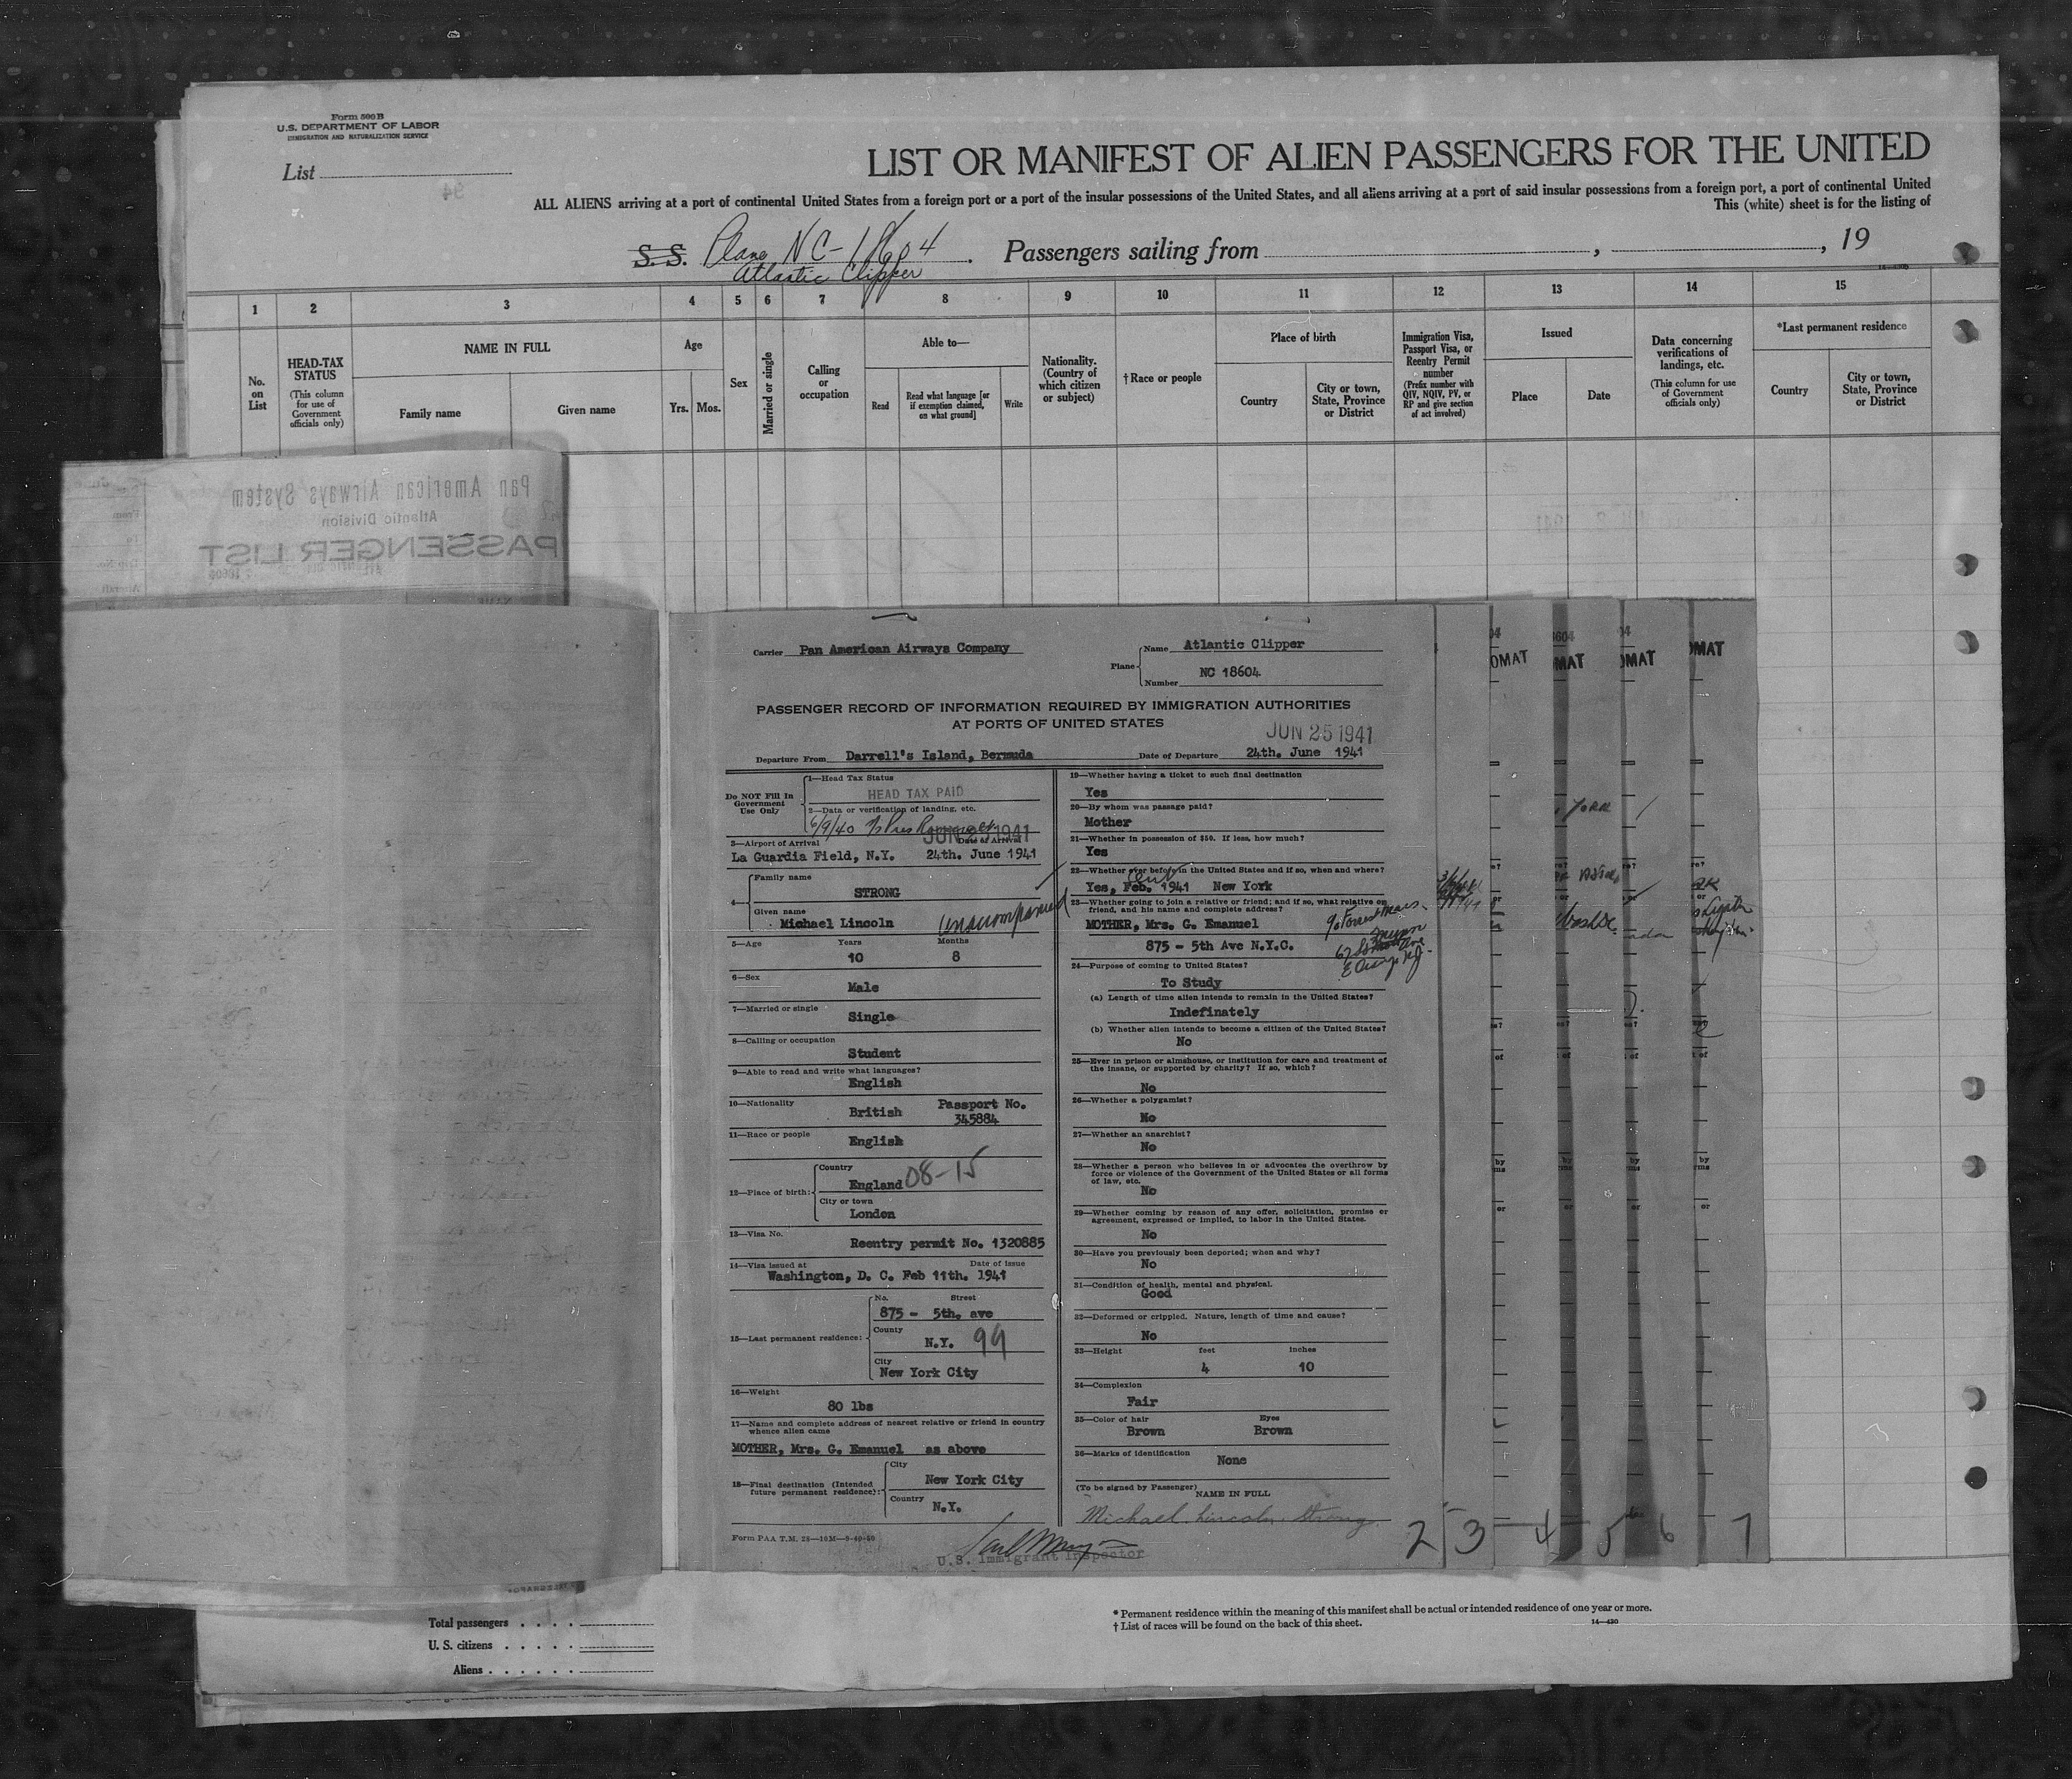 Form 500 B
U.S. DEPARTMENT OF LABOR
IMMIGRATION AND NATURALIZATION SERVICE
List
LIST OR MANIFEST OF ALIEN PASSENGERS FOR THE UNITED
ALL ALIENS arriving at a port of continental United States from a foreign port or a port of the insular possessions of the United States, and all aliens arriving at a port of said insular possessions from a foreign port, a port of continental United
This (white) sheet is for the listing of
S. S. Plane NC-18604 Passengers sailing from , , 19
Atlantic Clipper
1 2 3 4 5 6 7 8 9 10 11 12 13 14 15
No. on List
HEAD-TAX STATUS
(This column for use of Government officials only)
NAME IN FULL
Family name Given name
Age
Yrs. Mos.
Sex
Married or single
Calling or occupation
Able to—
Read
Read what language [or if exemption claimed, on what ground]
Write
Nationality. (Country of which citizen or subject)
†Race or people
Place of birth
Country
City or town, State, Province or District
Immigration Visa, Passport Visa, or Reentry Permit number
(Prefix number with QIV, NQIV, PV, or RP and give section of act involved)
Issued
Place Date
Data concerning verifications of landings, etc.
(This column for use of Government officials only)
*Last permanent residence
Country
City or town, State, Province or District
Pan American Airways System
Atlantic Division
PASSENGER LIST
Carrier Pan American Airways Company
Plane
Name Atlantic Clipper
Number NC 18604
PASSENGER RECORD OF INFORMATION REQUIRED BY IMMIGRATION AUTHORITIES
AT PORTS OF UNITED STATES
JUN 25 1941
Departure From Darrell's Island, Bermuda Date of Departure 24th. June 1941
Do NOT Fill In Government Use Only
1—Head Tax Status
HEAD TAX PAID
2—Data or verification of landing, etc.
6/9/40
JUN 25 1941
3—Airport of Arrival Date of Arrival
La Guardia Field, N.Y. 24th. June 1941
4—
Family name
STRONG
Given name
Michael Lincoln
unaccompanied
5—Age Years Months
10 8
6—Sex
Male
7—Married or single
Single
8—Calling or occupation
Student
9—Able to read and write what languages?
English
10—Nationality
British Passport No. 345884
11—Race or people
English
12—Place of birth:
Country
England 08-15
City or town
London
13—Visa No.
Reentry permit No. 1320885
14—Visa issued at Date of issue
Washington, D. C. Feb 11th. 1941
15—Last permanent residence:
No. Street
875 - 5th. ave
County
N.Y. 99
City
New York City
16—Weight
80 lbs
17—Name and complete address of nearest relative or friend in country whence alien came
MOTHER, Mrs. G. Emanuel as above
18—Final destination (Intended future permanent residence):
City
New York City
Country
N.Y.
Form PAA T.M. 28—10M—9-40-50
U.S. Immigrant Inspector
19—Whether having a ticket to such final destination
Yes
20—By whom was passage paid?
Mother
21—Whether in possession of $50. If less, how much?
Yes
22—Whether ever before in the United States and if so, when and where?
Yes, Feb. 1941 New York
23—Whether going to join a relative or friend; and if so, what relative or friend, and his name and complete address?
MOTHER, Mrs. G. Emanuel
875 - 5th Ave N.Y.C.
24—Purpose of coming to United States?
To Study
(a) Length of time alien intends to remain in the United States?
Indefinately
(b) Whether alien intends to become a citizen of the United States?
No
25—Ever in prison or almshouse, or institution for care and treatment of the insane, or supported by charity? If so, which?
No
26—Whether a polygamist?
No
27—Whether an anarchist?
No
28—Whether a person who believes in or advocates the overthrow by force or violence of the Government of the United States or all forms of law, etc.
No
29—Whether coming by reason of any offer, solicitation, promise or agreement, expressed or implied, to labor in the United States.
No
30—Have you previously been deported; when and why?
No
31—Condition of health, mental and physical.
Good
32—Deformed or crippled. Nature, length of time and cause?
No
33—Height feet inches
4 10
34—Complexion
Fair
35—Color of hair Eyes
Brown Brown
36—Marks of identification
None
(To be signed by Passenger)
NAME IN FULL
Michael Lincoln Strong
2 3 4 5 6 7
Total passengers
U. S. citizens
Aliens
* Permanent residence within the meaning of this manifest shall be actual or intended residence of one year or more.
† List of races will be found on the back of this sheet.
14—430